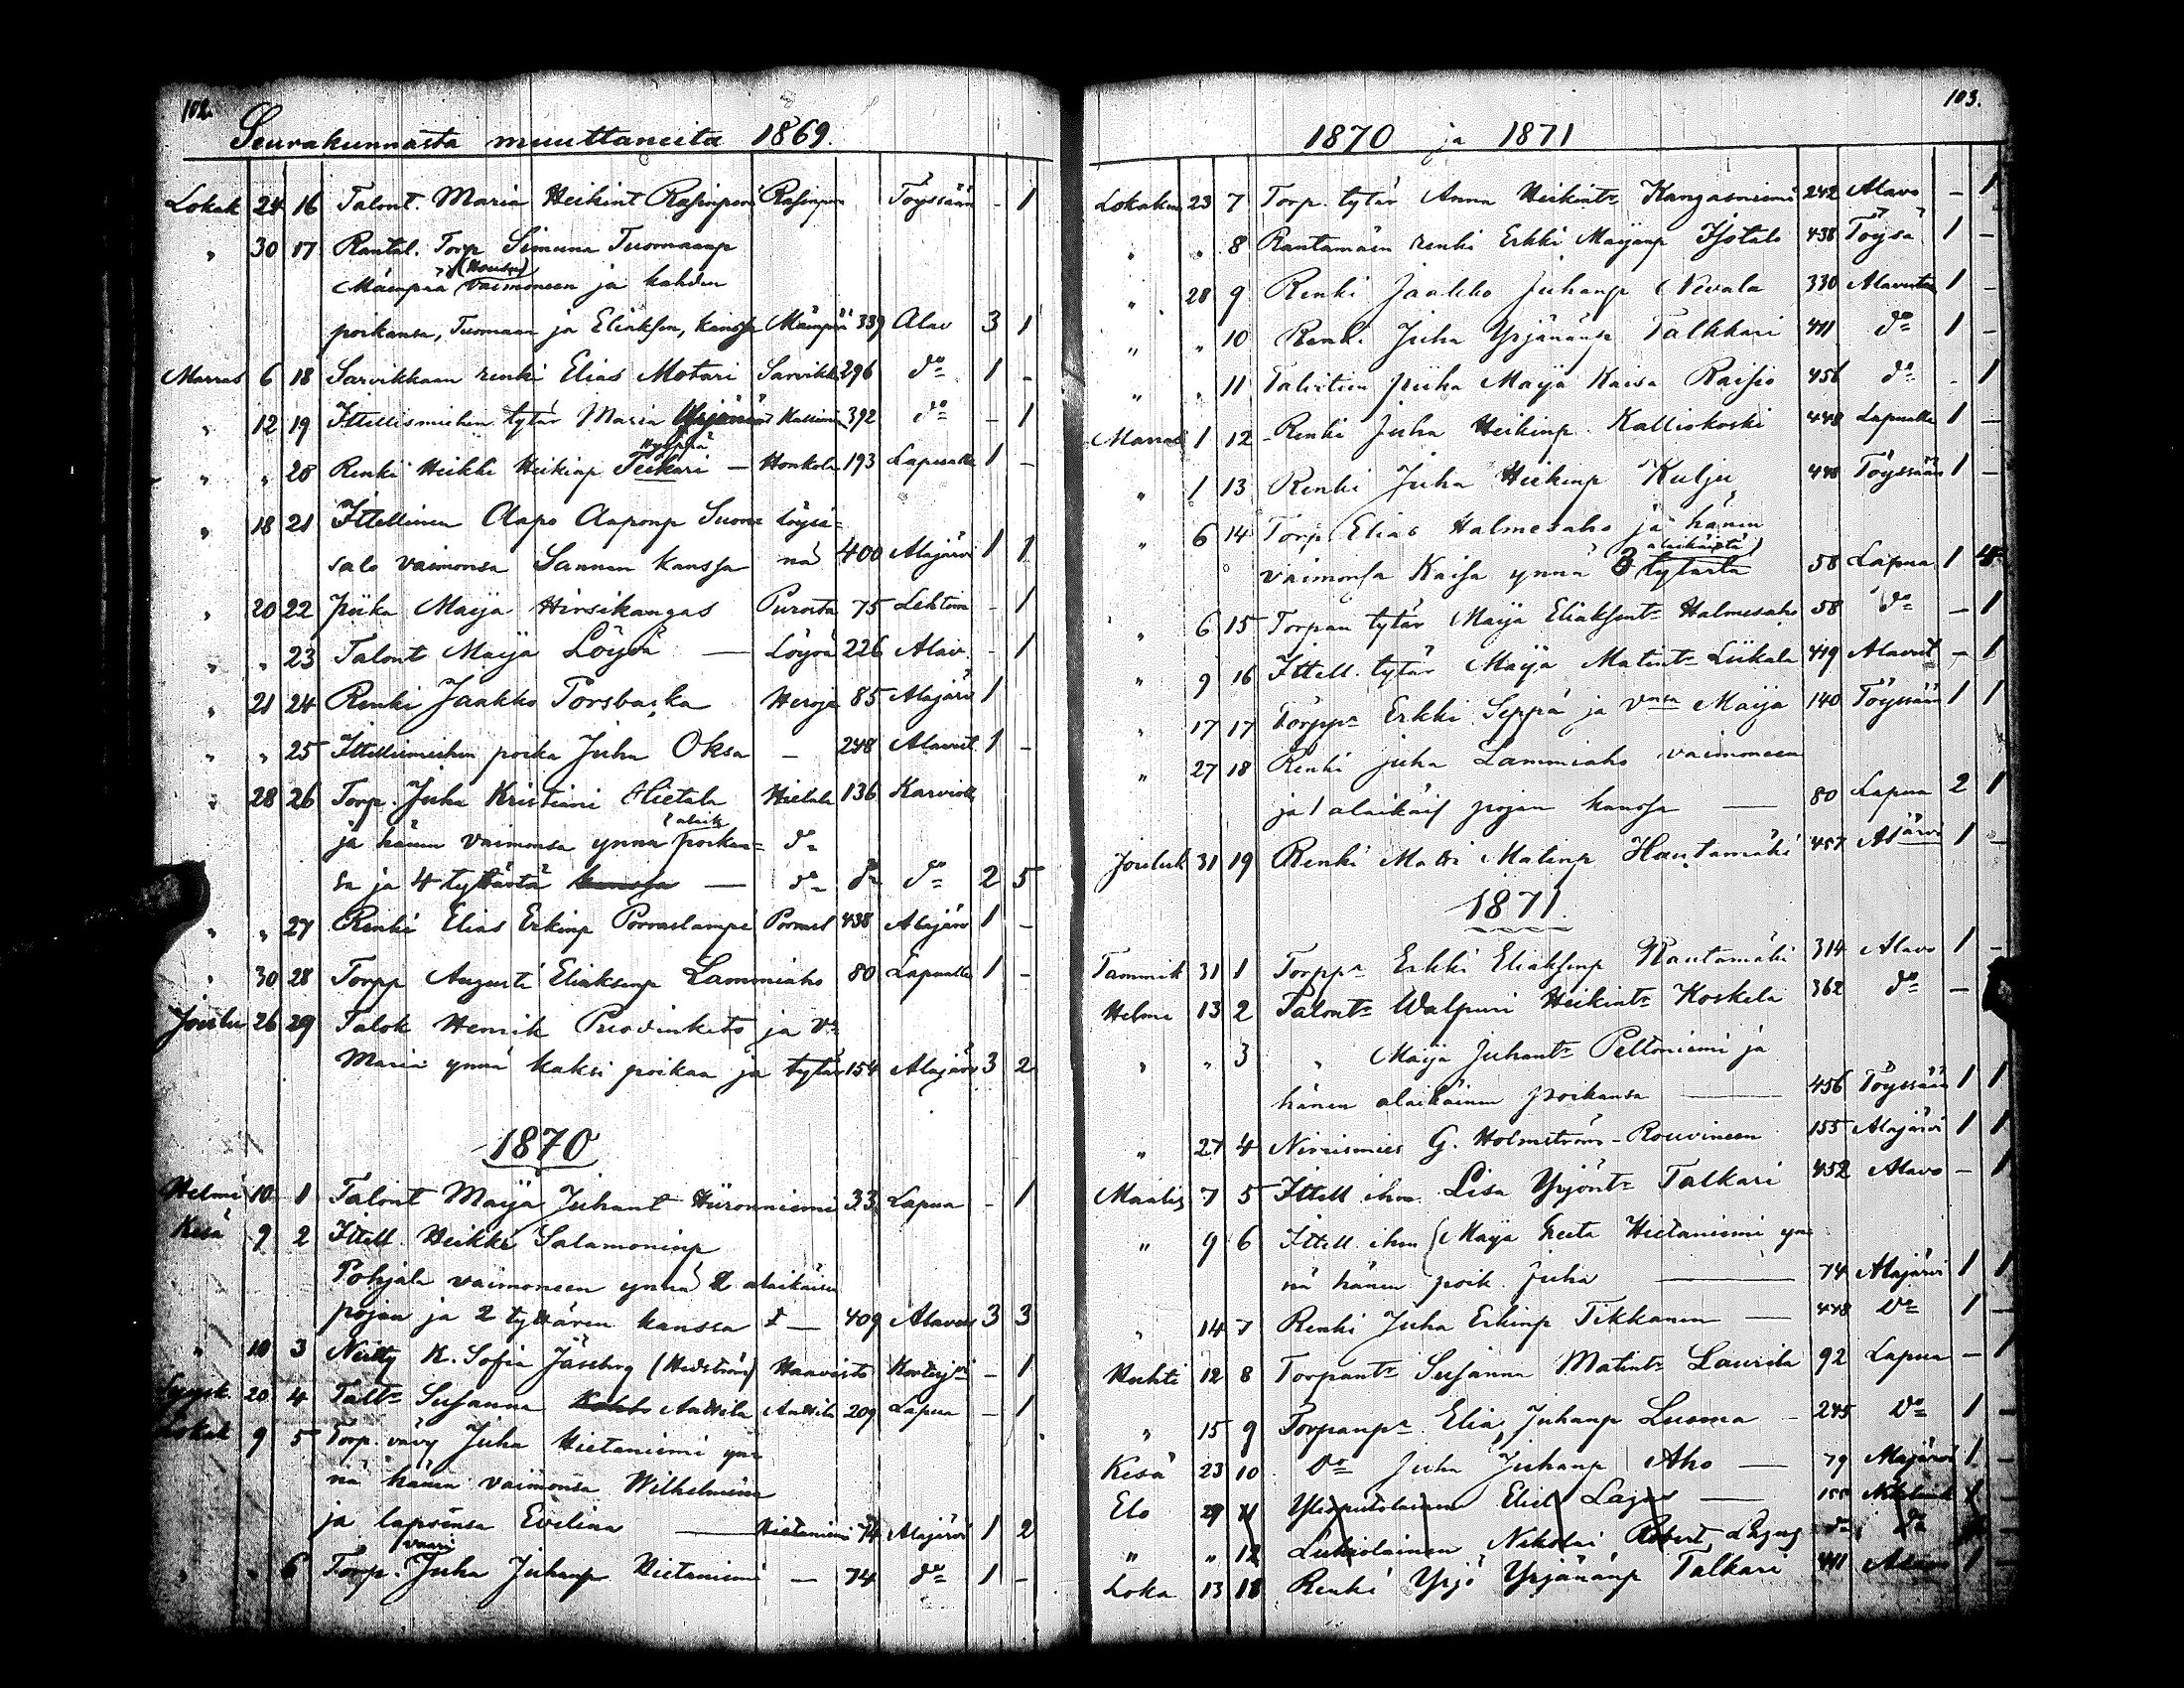 102.
Seurakunnasta muuttaneita 1869.
Lokak 24 16 Talont. Maria Heikint Rasinperi Rasinper Töyssään - 1
" 30 17 Rantal. Torp Simuna Tuomaanp
Mäenpää vaimoneen ja kahden
poikansa, Tuomaan ja Eliaksen, kanssa Mäenpää 339 Alav 3 1
Marras 6 18 Sarvikkaan renki Elias Motari Sarvikk 296 do 1 -
" 12 19 Ittellismiehen tytär Maria 392 do - 1
" " 20 Renki Heikki Heikinp Teikari - Honkola 193 Lapualle 1 -
" 18 21 Ittellinen Aapo Aaponp Suoma Löyä=
salo vaimonsa Sannan kanssa nä 400 Alajärvi 1 1
" 20 22 Piika Maija Hirsikangas Purosta 75 Lehtim - 1
" " 23 Talont Maija Löyvä - Löyvä 226 Alav. - 1
" 21 24 Renki Jaakko Porsbacka Heroja 85 Alajärv 1
" " 25 Ittellismiehen poika Juha Oksa - 248 Alavut 1 -
" 28 26 Torp. Juha Kristiani Hietala Hietala 136 Karviall
ja hänen vaimonsa ynnä alaik poikan= do
sa ja 4 tytärtä kanssa - do do do 2 5
" " 27 Renki Elias Erkinp Porraslampi Porrasl 438 Alajärv 1 -
" 30 28 Torpp Augusti Eliaksenp Lammiaho 80 Lapualle 1 -
Joulu 26 29 Talok Henrik Puovinkets ja vo
Maria ynnä kaksi poikaa ja tytär 154 Alajärv 3 2
1870
Helmi 10 1 Talont Maija Juhant Hiironniemi 33 Lapua - 1
Kesä 9 2 Ittell. Heikki Salamoninp
Pohjala vaimoneen ynnä 2 alaikäisen
pojan ja 2 tyttären kanssa - 409 Alavut 3 3
" 10 3 Neitty K. Sofia (Hedström) Haavisto - 1
Syysk 20 4 Taltr Susanna Anttila Anttila 209 Lapua - 1
Lokak 9 5 Torp. vävy Juha Hietaniemi yn=
nä hänen vaimonsa Wilhelmina
ja lapsensa Evelina - Hietaniemi 74 Alajärvi 1 2
" " 6 Torp. vaari Juha Juhanp Hietaniemi - 74 do 1 -
103.
1870 ja 1871
Lokakuu 23 7 Torp. tytär Anna Heikintr Kangasniemi 242 Alavo - 1
" " 8 Rantamäen renki Erkki Maijanp Isotalo 438 Töysä 1 -
" 28 9 Renki Jaakko Juhanp Nevala 330 Alavuten 1 -
" " 10 Renki Juha Yrjänänp Talkkari 411 do 1 -
" " 11 Talvitien piika Maija Kaisa Raisio 456 do - 1
Marras 1 12 Renki Juha Heikinp. Kalliokoski 448 Lapualle 1 -
" 1 13 Renki Juha Heikinp Kulju 448 Töyssään 1 -
" 6 14 Torp Elias Halmesaho ja hänen
vaimonsa Kaisa ynnä 3 alaikäistä tytärtä 58 Lapua 1 4
" 6 15 Torpan tytär Maija Eliaksentr Halmesaho 58 do - 1
" 9 16 Ittell. tytär Maija Matintr Liikala 419 Alavut - 1
" 17 17 Torppr Erkki Seppä ja vnsa Maija 140 Töyssään 1 1
" 27 18 Renki Juha Lammiaho vaimoneen
ja 1 alaikäis pojan kanssa - 80 Lapua 2 1
Jouluk 31 19 Renki Matti Matinp Hautamäki 457 Aljärvi 1 -
1871.
Tammik 31 1 Torppr Erkki Eliaksenp Rautamäki 314 Alavo 1 -
Helmi 13 2 Talontr Walpuri Heikintr Koskela 362 do -
" " 3 " Maija Juhantr Peltoniemi ja
hänen alaikäinen poikansa - 456 Töyssään 1 1
" 27 4 Nimismies G. Holmström - Rouvineen 155 Alajärvi 1 1
Maalis 7 5 Ittell ihm. Lisa Yrjöntr Talkari 452 Alavo - 1
" 9 6 Ittell. ihm Maija Greta Hietaniemi yn=
nä hänen poik. Juha - 74 Alajärvi 1 1
" 14 7 Renki Juha Erkinp Tikkanen - 448 do 1 -
Huhti 12 8 Torpantr Susanna Matintr Laurila 92 Lapua - 1
" 15 9 Torpanpr Elias Juhanp Luoma - 245 do 1 -
Kesä 23 10 do Juha Juhanp Aho - 79 Alajärvi 1 -
Elo 29 11 Yliopistolainen Eliel Lagus -
" " 12 Lukiolainen Nikolai Robert Lagus do do
Loka 13 18 Renki Yrjö Yrjänänp Talkari 411 Alavo 1 -